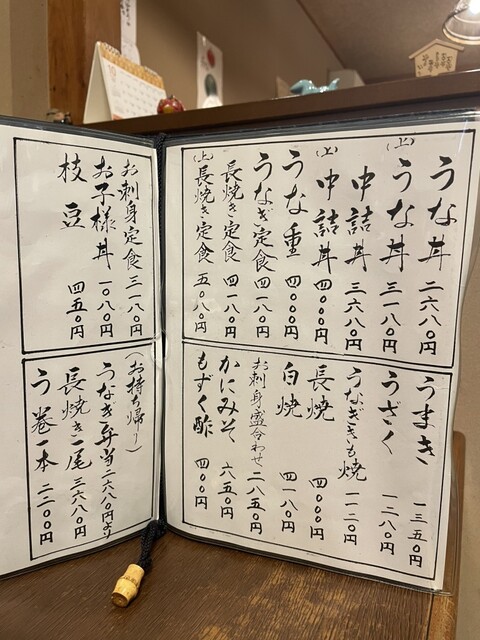 うな丼 二六八〇円
(上)うな丼 三一八〇円
中詰丼 三六八〇円
(上)中詰丼 四〇〇〇円
うな重 四〇〇〇円
うなぎ定食 四一八〇円
長焼き定食 四一八〇円
(上)長焼き定食 五〇八〇円
うまき 一三五〇円
うざく 一二八〇円
うなぎきも焼 一一二〇円
長焼 四〇〇〇円
白焼 四一八〇円
お刺身盛合わせ 二八五〇円
かにみそ 六五〇円
もずく酢 四〇〇円
お刺身定食 三一八〇円
お子様丼 一〇八〇円
枝豆 四五〇円
(お持ち帰り)
うなぎ弁当 二六八〇円より
長焼き一尾 三六八〇円
う巻一本 二二〇〇円